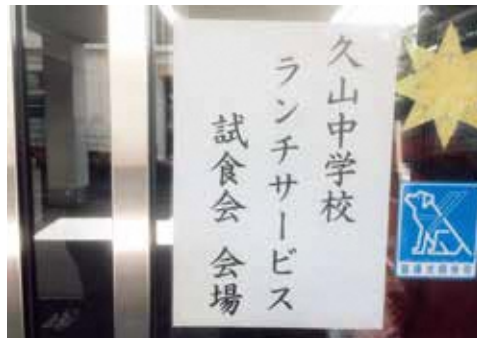 久山中学校
ランチサービス
試食会 会場